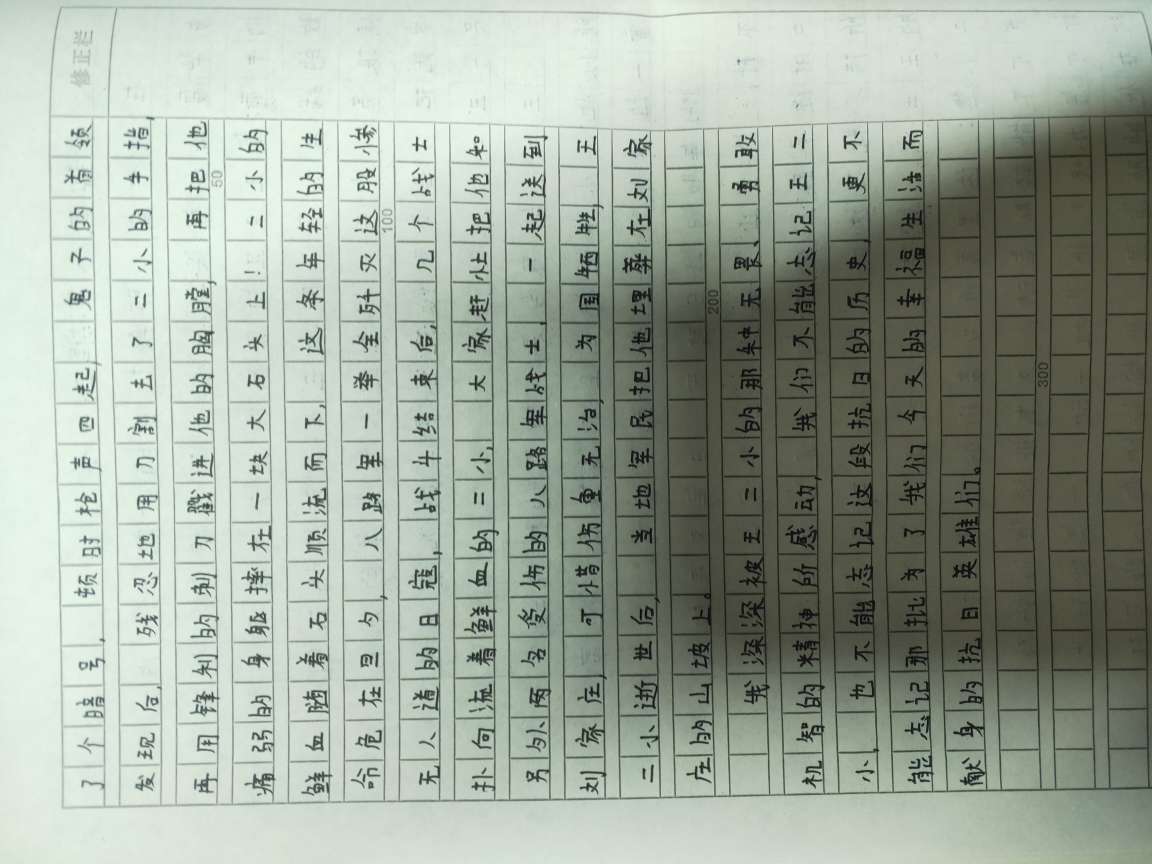 修正栏
了个暗号，顿时枪声四起，鬼子的首领
发现后，残忍地用刀割去了二小的手指，
再用锋利的刺刀戳进他的胸膛，再把他
50
痛弱的身躯摔在一块大石头上！二小的
鲜血随着石头顺流而下，这条年轻的生
命危在旦夕，八路军一举全歼灭这股惨
100
无人道的日寇，战斗结束后，几个战士
扑向流着鲜血的二小，大家赶忙把他和
另外两名受伤的八路军战士，一起送到
刘家庄，可惜伤重无治，为国牺牲，王
二小逝世后，当地军民把他埋葬在刘家
庄的山坡上。
200
我深深被王二小的那种无畏、勇敢
机智的精神所感动，我们不能忘记王二
小，也不能忘记这段抗日的历史，更不
能忘记那批为了我们今天的幸福生活而
献身的抗日英雄们。
300